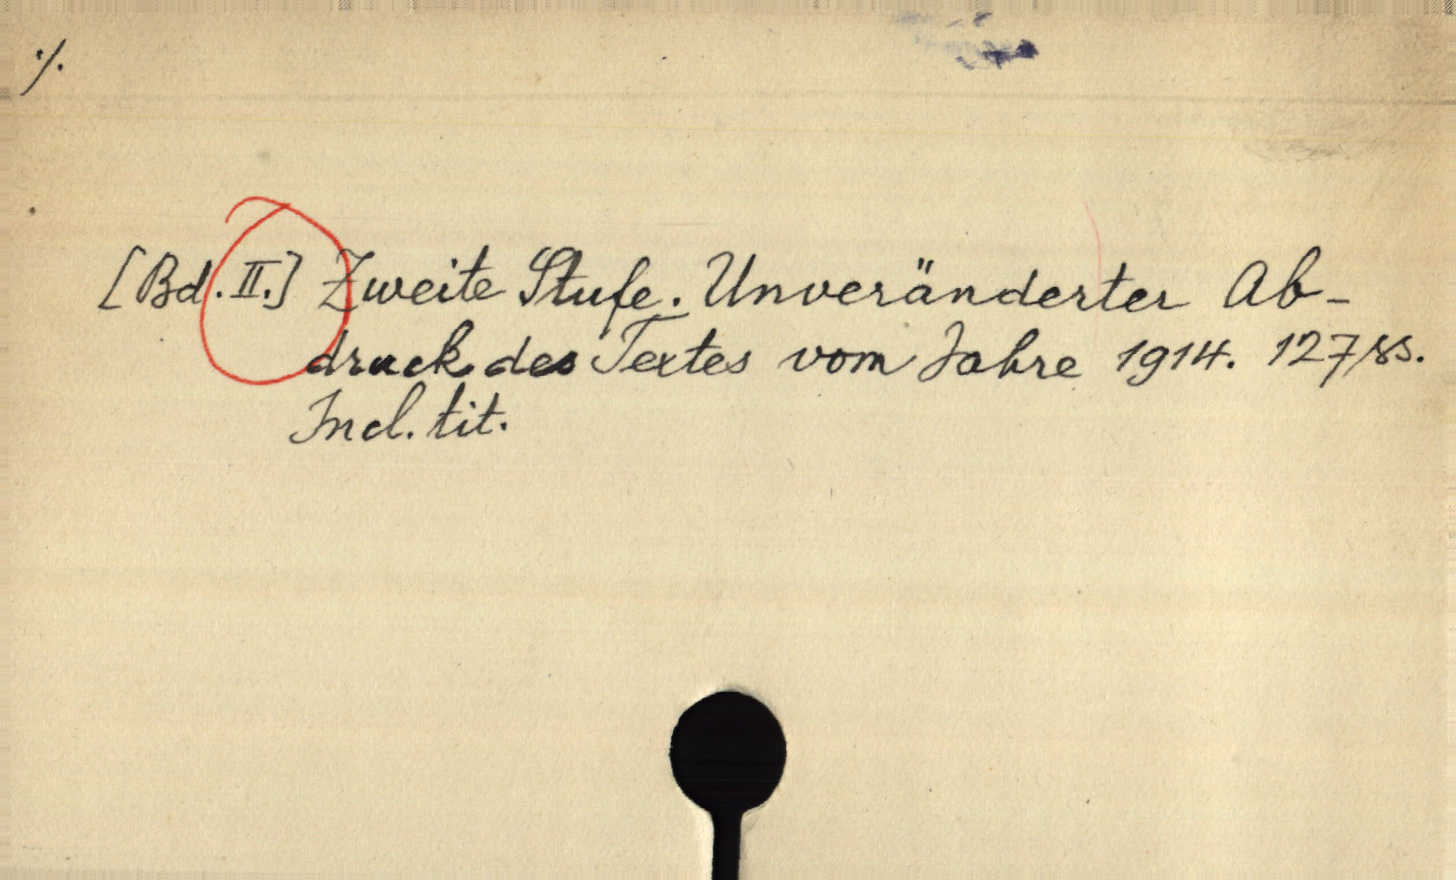 ./.
[Bd. II.] Zweite Stufe. Unveränderter Ab-
druck des Textes vom Jahre 1914. 127 ss.
Incl. tit.